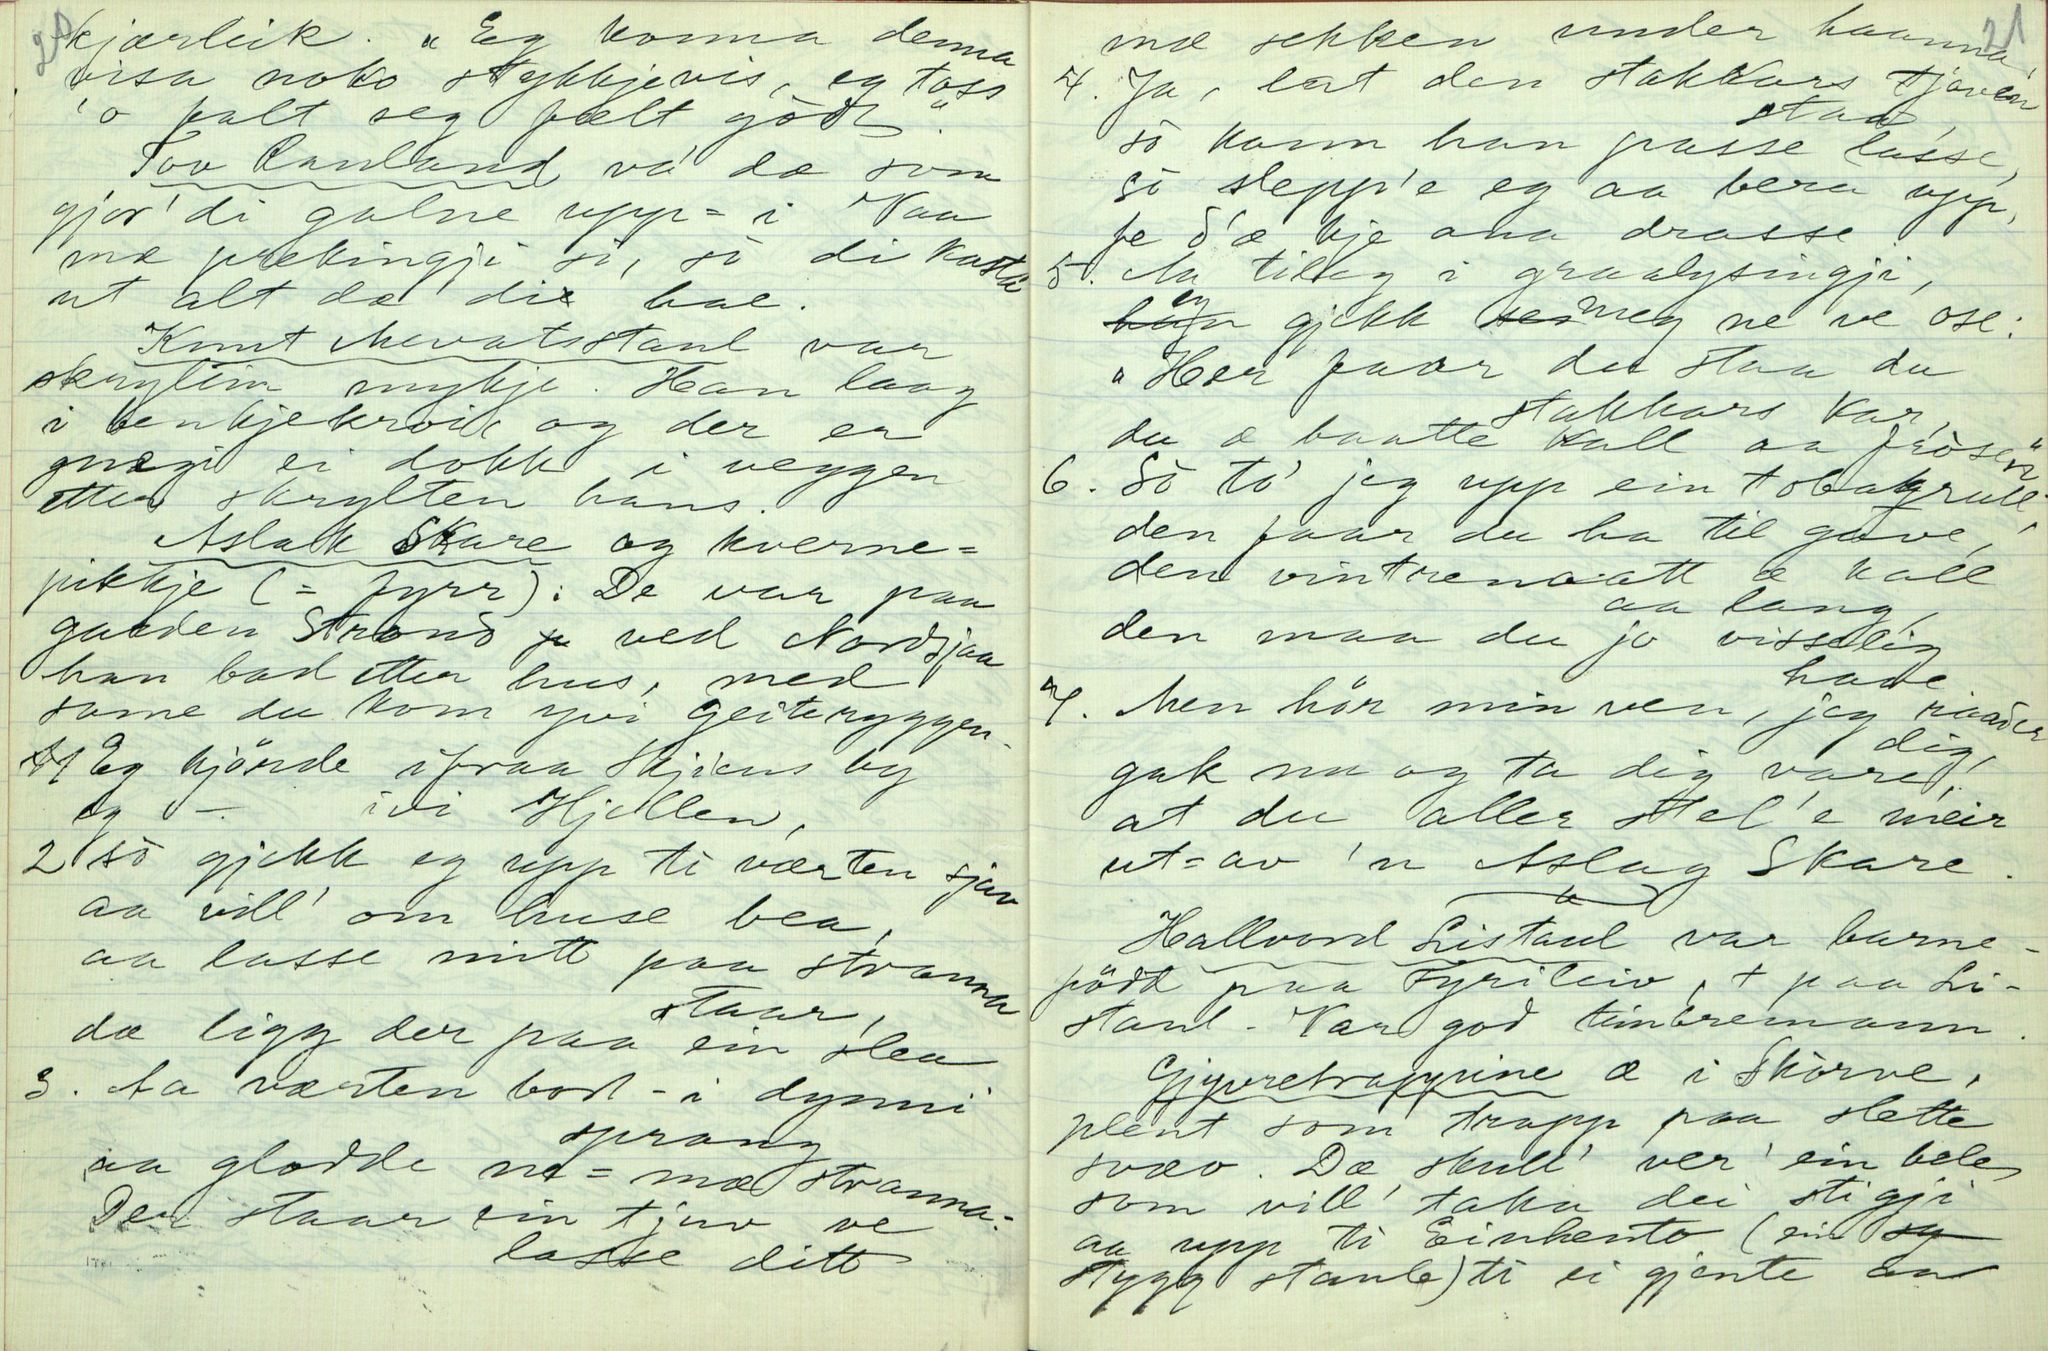 20
kjærleik. "Eg konna denna
visa noko stykkjevis, eg tass
'o falt seg fælt gòdt."
Tov Rauland vá dæ som
gjor' di galne upp=i Vaa
mæ prekingji si, sò di kasta
ut alt dæ di hae.
Knut Mevatsstaul var
skrylin mykje. Han laag
i benkjekroik og der er
gnægi ei dokk i veggen
etter skrylten hans.
Aslak Skare og kverne=
pikkje (= fyrr): De var paa
garden Strond ved Nordsjaa
han bad etter hus, med
same du kom yvi Geiteryggen.
1 Eg kjörde ifraa Skjiens by
eg — ivi Hjellen,
2 sò gjekk eg upp ti værten sjav
aa vill' om huse bea,
aa lasse mitt paa stranna
staar,
dæ ligg der paa ein slea
3. Aa værten bort-i dynni
sprang
aa glodde ne=mæ stranna:
Der staar ein tjuv ve
lasse ditt
21
mæ sekken under haanna,
4. Ja, lat den stakkars tjaven
staa,
sò kann han passe lasse,
sò slepp'e eg aa bera upp,
fe d'æ kje ana drasse
5. Aa tileg i graalysingji,
eg gjekk meg ne ve ose:
"Her faar du staa du
stakkars kar,
du æ baatte kall aa frösen"
6. Sò to' jeg upp ein tobakgrull,
den faar du ha til gave,
den vintrenaatt æ kall
aa lang,
den maa du jo visselig
have
7. Men hör min ven, jeg raader
dig,
gak nu og ta dig vare,
at du aller stel'e meir
ut=av 'n Aslag Skare.
Hallvord Listaul var barne-
född paa Fyrileiv, + paa Li-
staul - Var god timbremann.
Gjyvretrappine æ i Skorve,
plent som trapp paa slette
svæv. Dæ skull' ver' ein bele
som vill' taka dei stigji
aa upp ti Einhento (ein
stygg staule) ti ei gjente an